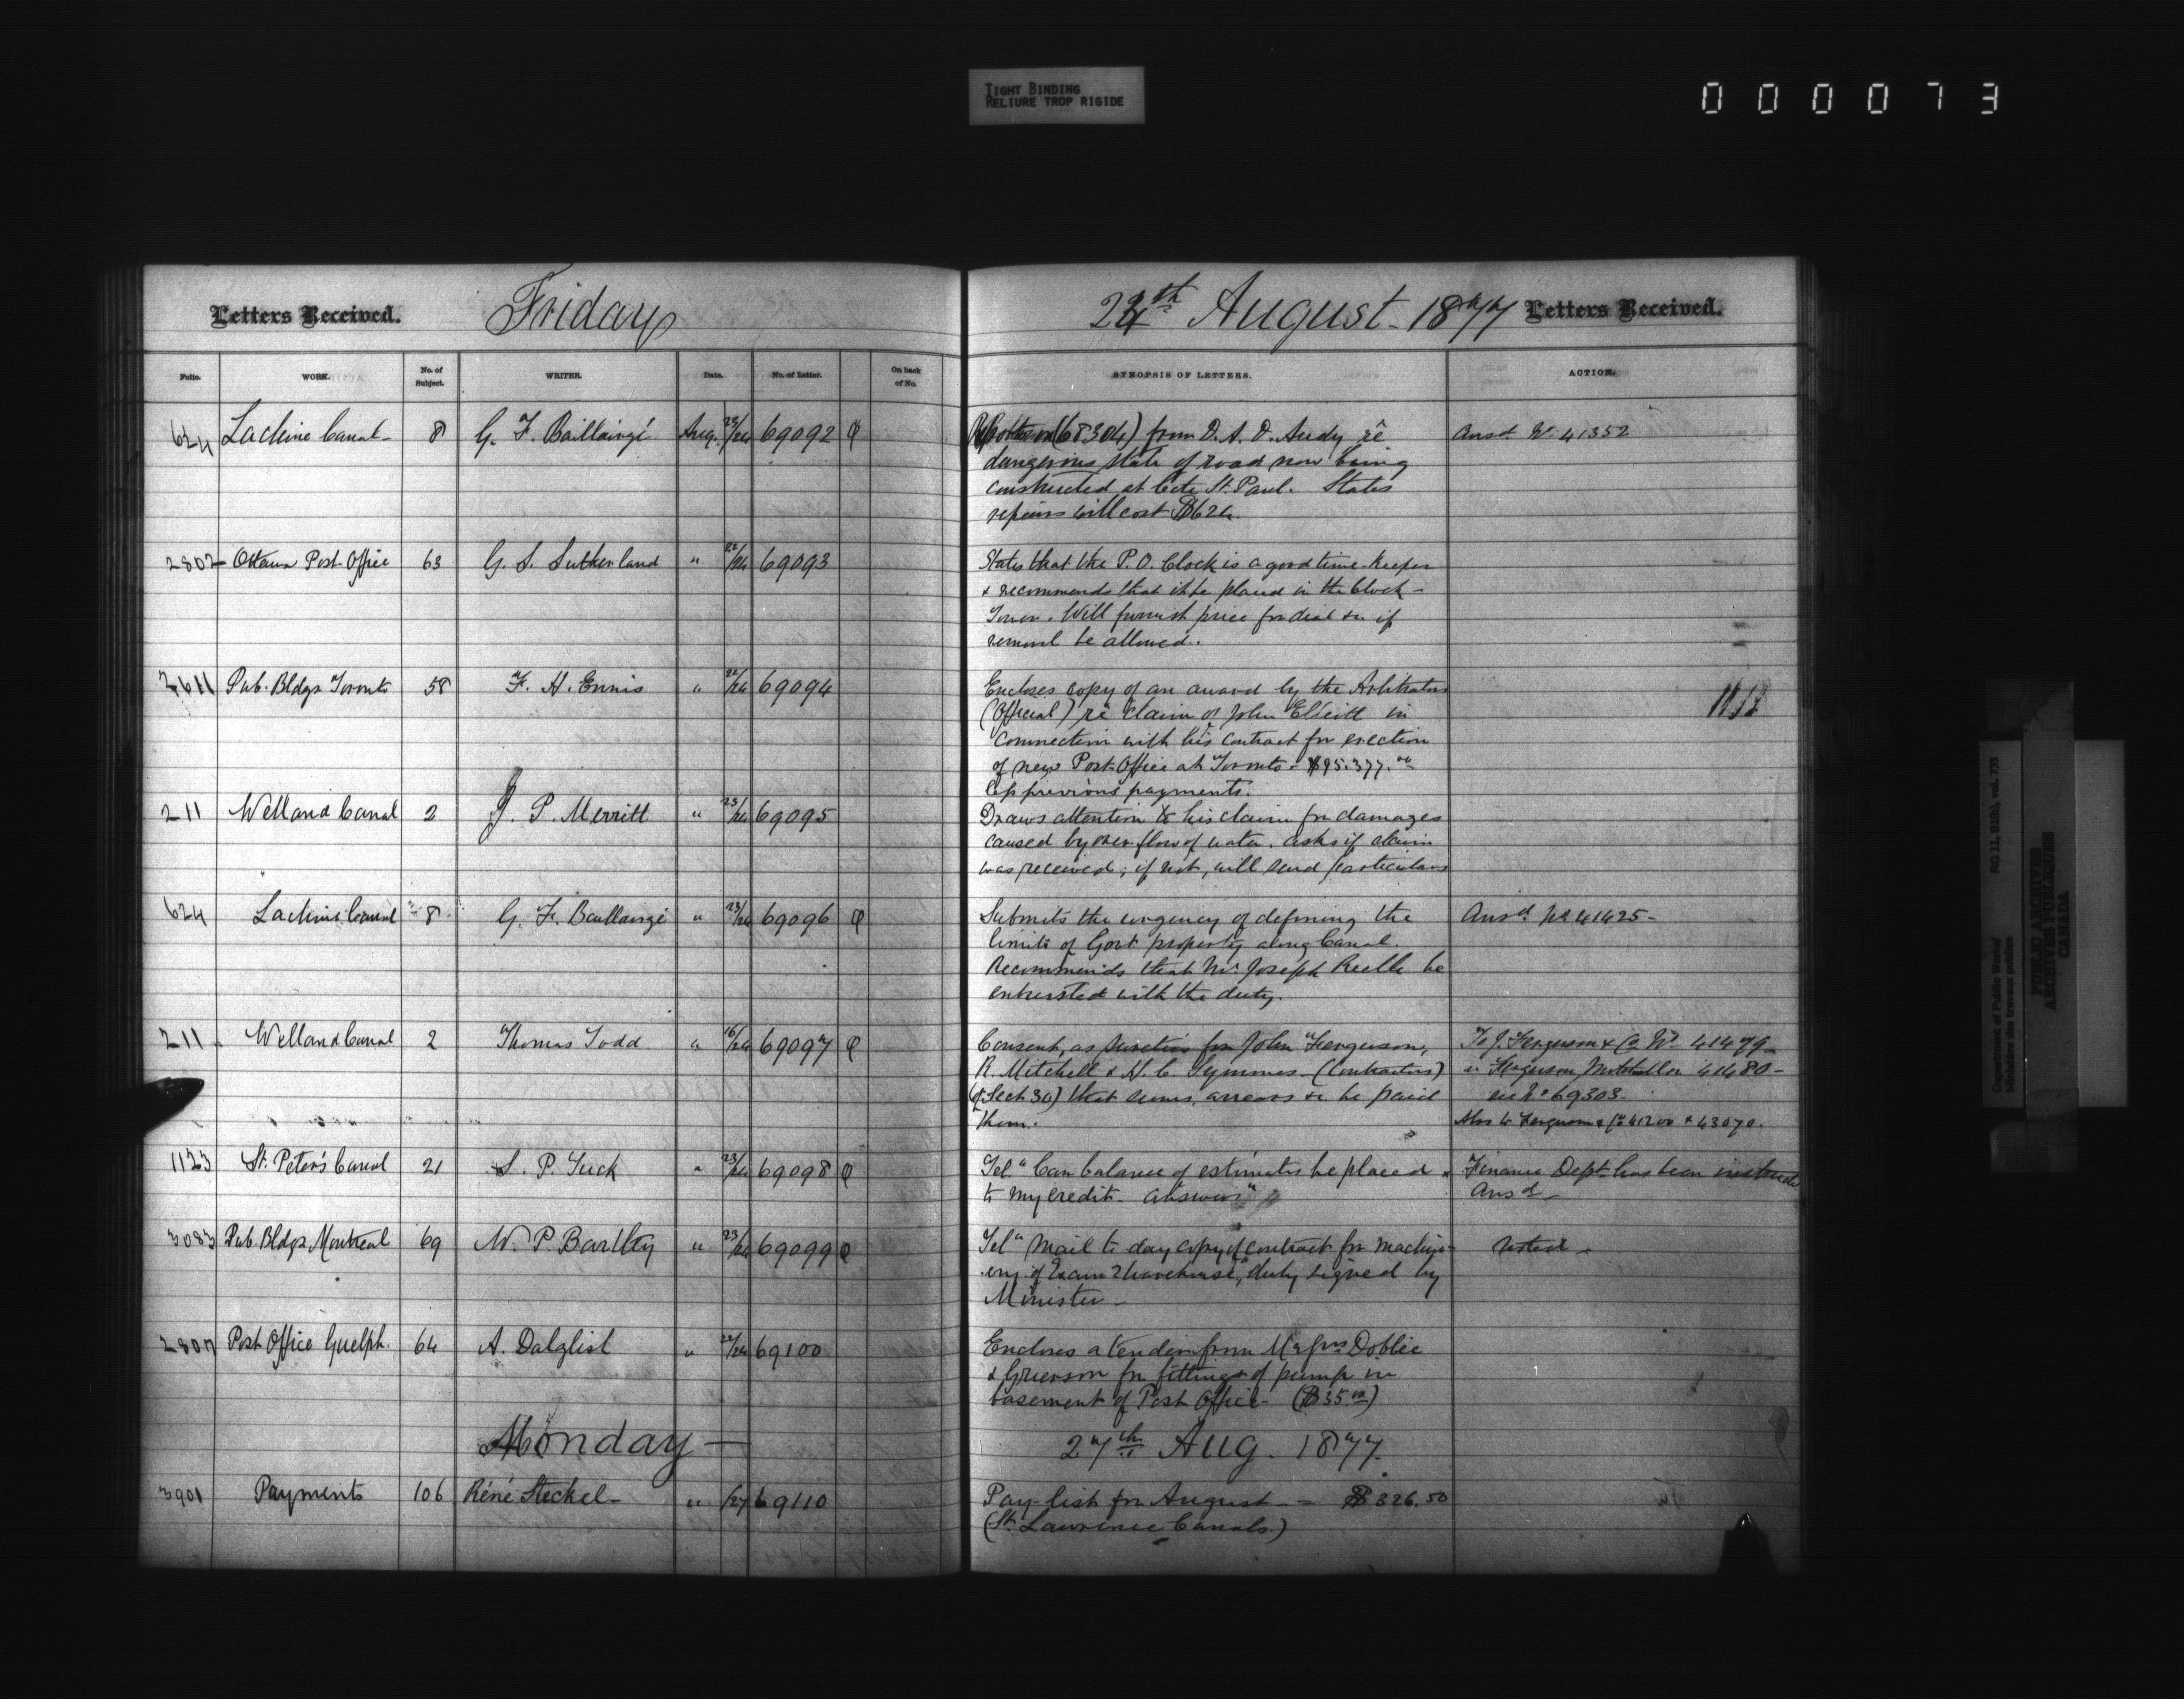 TIGHT BINDING
RELIURE TROP RIGIDE
000073
Letters Received. Friday 24th August 1877 Letters Received.
Folio. WORK. No. of Subject. WRITER. Date. No. of Letter. On back of No. SYNOPSIS OF LETTERS. ACTION.
624 Lachine Canal 8 G. F. Baillairgé Aug. 23/24 69092 (68304) from D. A. O. Audy rê Ansd. No. 41352
dangerous state of road now being
constructed at Cote St. Paul. States
repairs will cost $624.
2802 Ottawa Post Office 63 G. S. Sutherland " 22/24 69093 States that the P.O. Clock is a good time-keeper
& recommends that it be placed in the Clock-
Tower. Will furnish price for dial &c if
removal be allowed.
2611 Pub. Bldgs Toronto 58 F. H. Ennis " 22/24 69094 Encloses copy of an award by the Arbitrators
(Official) rê claim of John Elliott in
connection with his contract for erection
of new Post Office at Toronto - $95.377.00
previous payments.
211 Welland Canal 2 J. P. Merritt " 23/24 69095 Draws attention to his claim for damages
caused by over-flow of water. asks if claim
was received; if not, will send particulars
624 Lachine Canal 8 G. F. Baillairgé " 23/24 69096 Submits the urgency of defining the Ansd. No 41425-
limits of Govt property along Canal.
Recommends that Mr. Joseph Rielle be
entrusted with the duty.
211 Welland Canal 2 Thomas Todd " 16/24 69097 Consent, as sureties for John Ferguson, To J. Ferguson & Co No. 41479
R. Mitchell & H. C. Symmes (Contractors) " Ferguson Mitchell 41480-
(of Sect 30) that sums, arrears &c be paid see No 69303-
them. Also to Ferguson & Co 41200 & 43070.
1123 St. Peter's Canal 21 S. P. Tuck " 23/24 69098 Tel "Can balance of estimates be placed Finance Dept has been
to my credit - answer" Ansd -
3083 Pub. Bldgs Montreal 69 W. P. Bartley " 23/24 69099 Tel "Mail to day copy of contract for machin- noted -
ery of Exam g warehouse," duly signed by
Minister -
2807 Post Office Guelph. 64 A. Dalglish " 22/24 69100 Encloses a tender from Messrs Dobbie
& Grierson for fitting of pump in
basement of Post Office - ($35.00)
Monday - 27th Aug. 1877.
3901 Payments 106 Réné Steckel - " /27 69110 Pay-list for August - - $326.50
(St. Lawrence Canals.)
Department of Public Works/
Ministère des travaux publics
RG 11, B1(b), vol. 735
PUBLIC ARCHIVES
ARCHIVES PUBLIQUES
CANADA